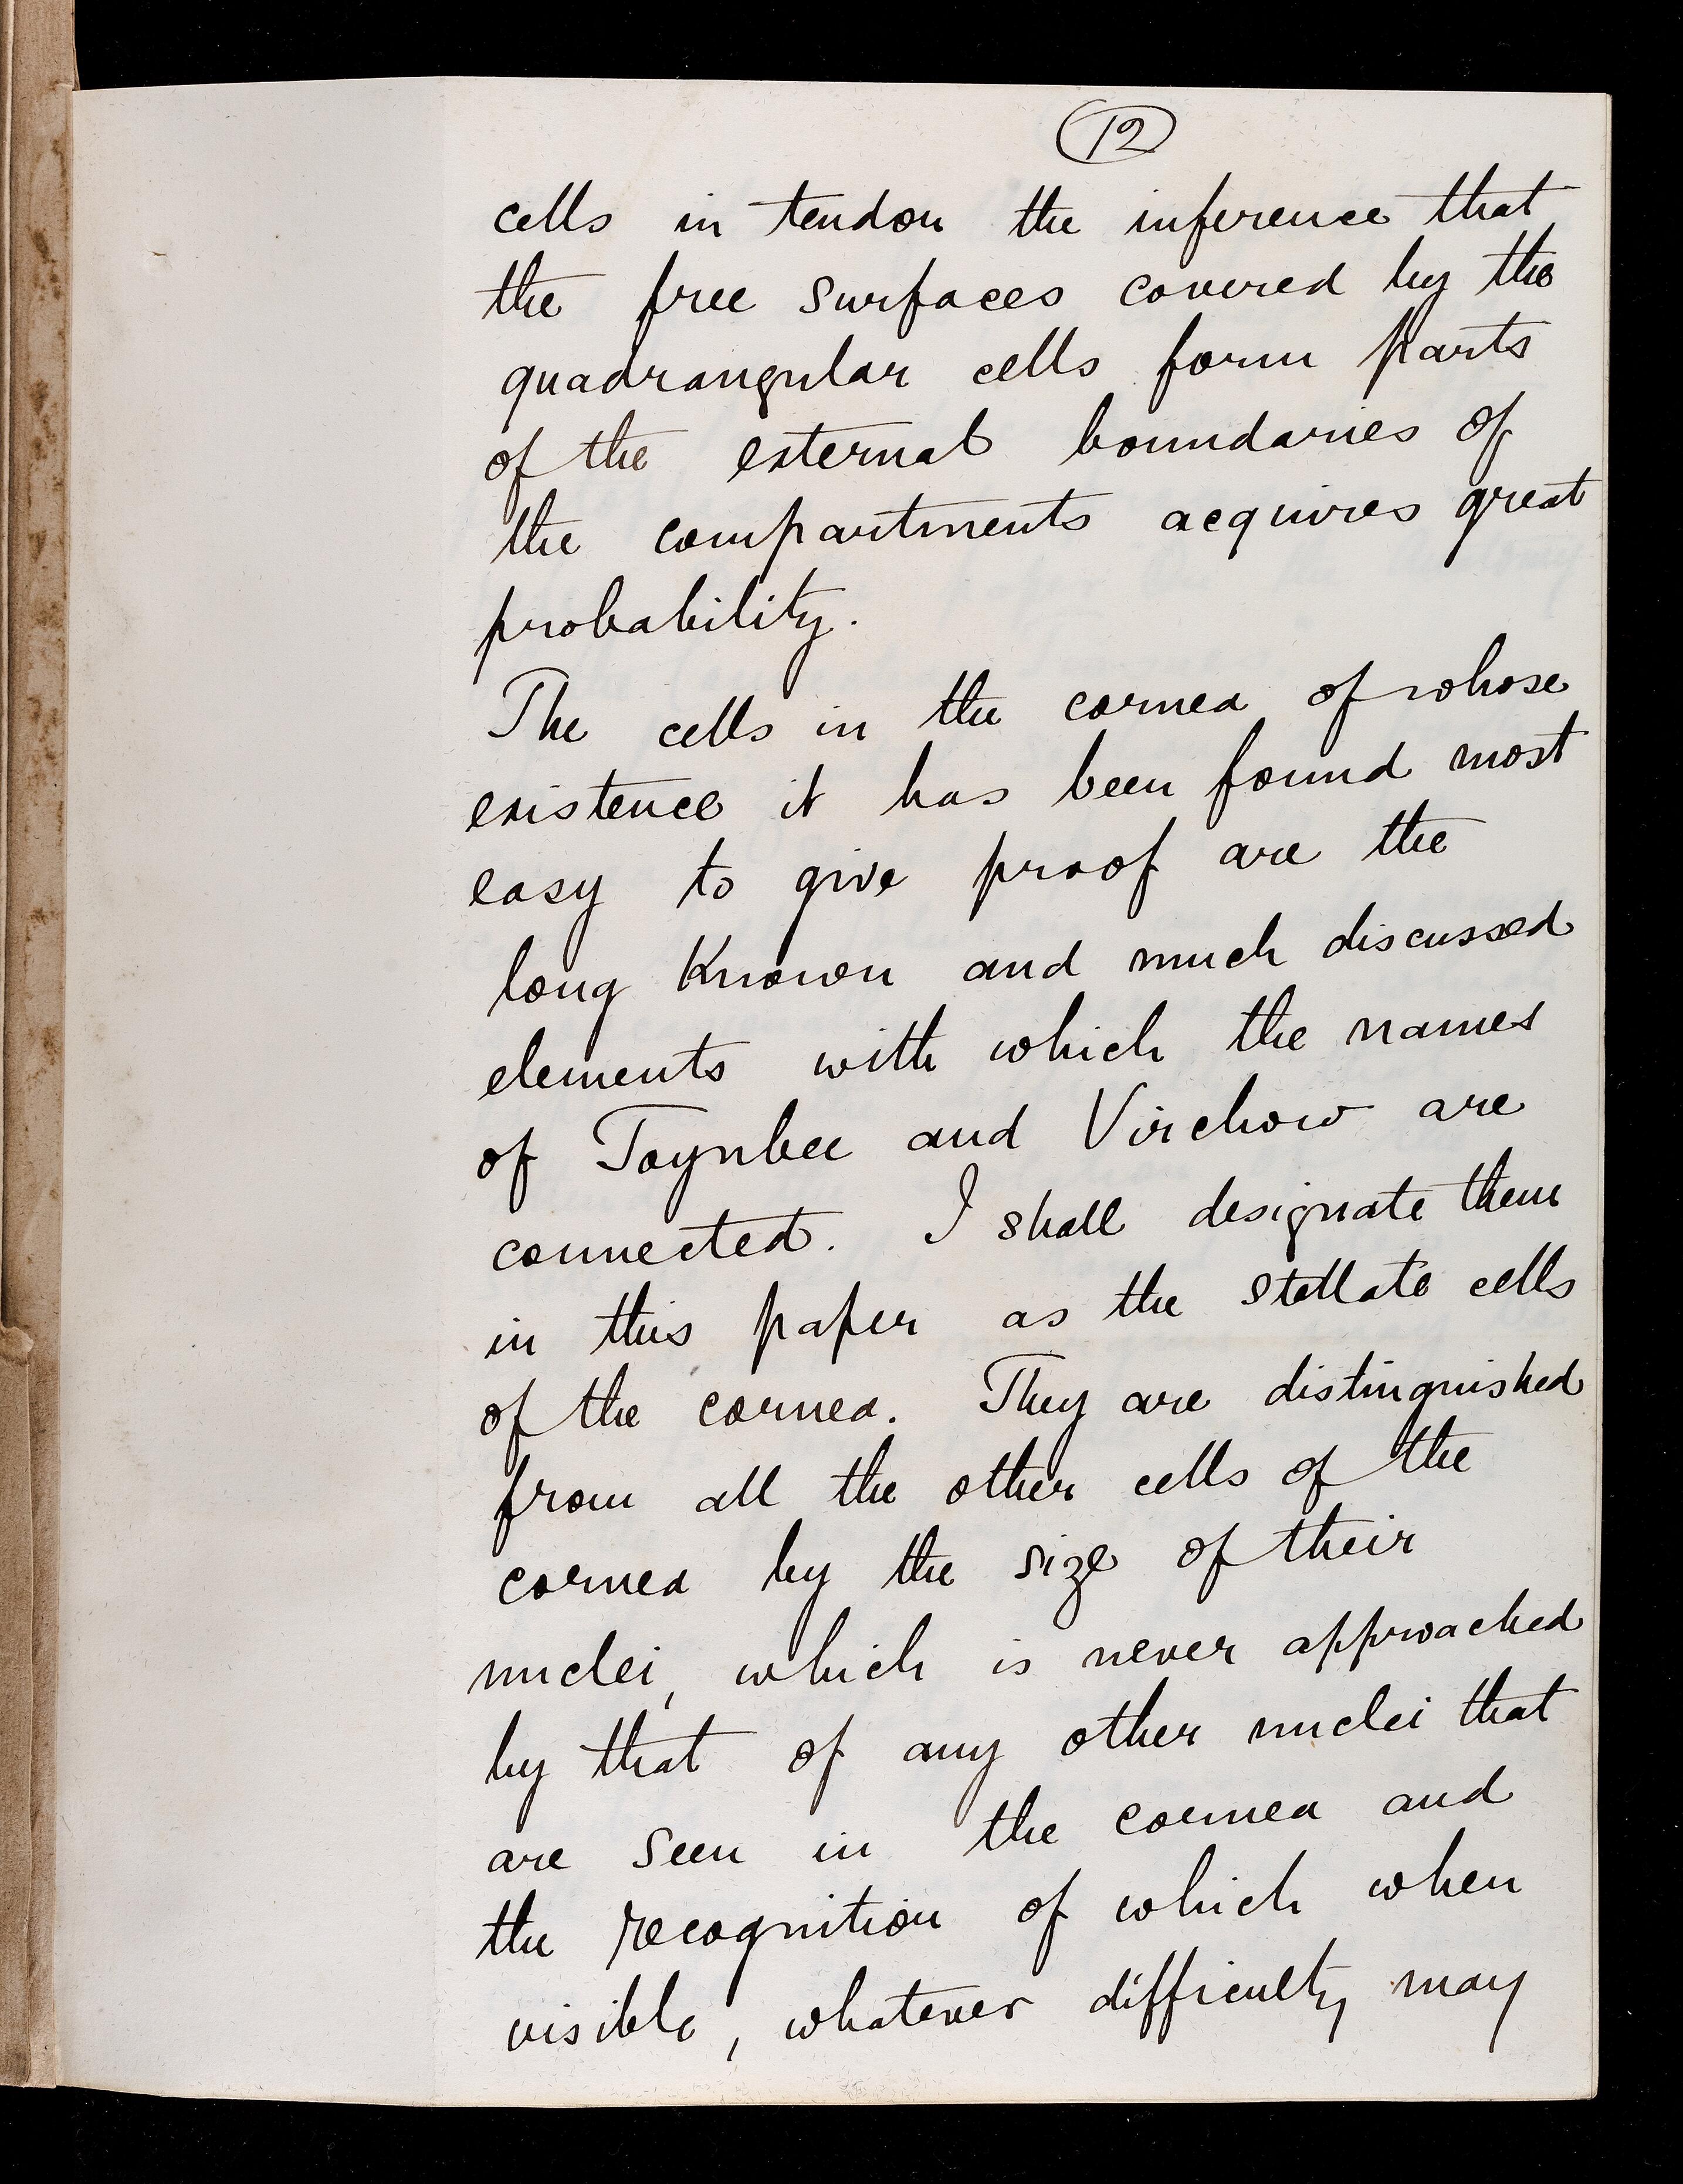 12
cells in tendon the inference that
the free surfaces covered by the
quadrangular cells form parts
of the external boundaries of
the compartments acquires great
probability.
The cells in the cornea of whose
existence it has been found most
easy to give proof are the
long known and much discussed
elements with which the names
of Toynbee and Virchow are
connected. I shall designate them
in this paper as the stellate cells
of the cornea. They are distinguished
from all the other cells of the
cornea by the size of their
nuclei, which is never approached
by that of any other nuclei that
are seen in the cornea and
the recognition of which when
visible, whatever difficulty may